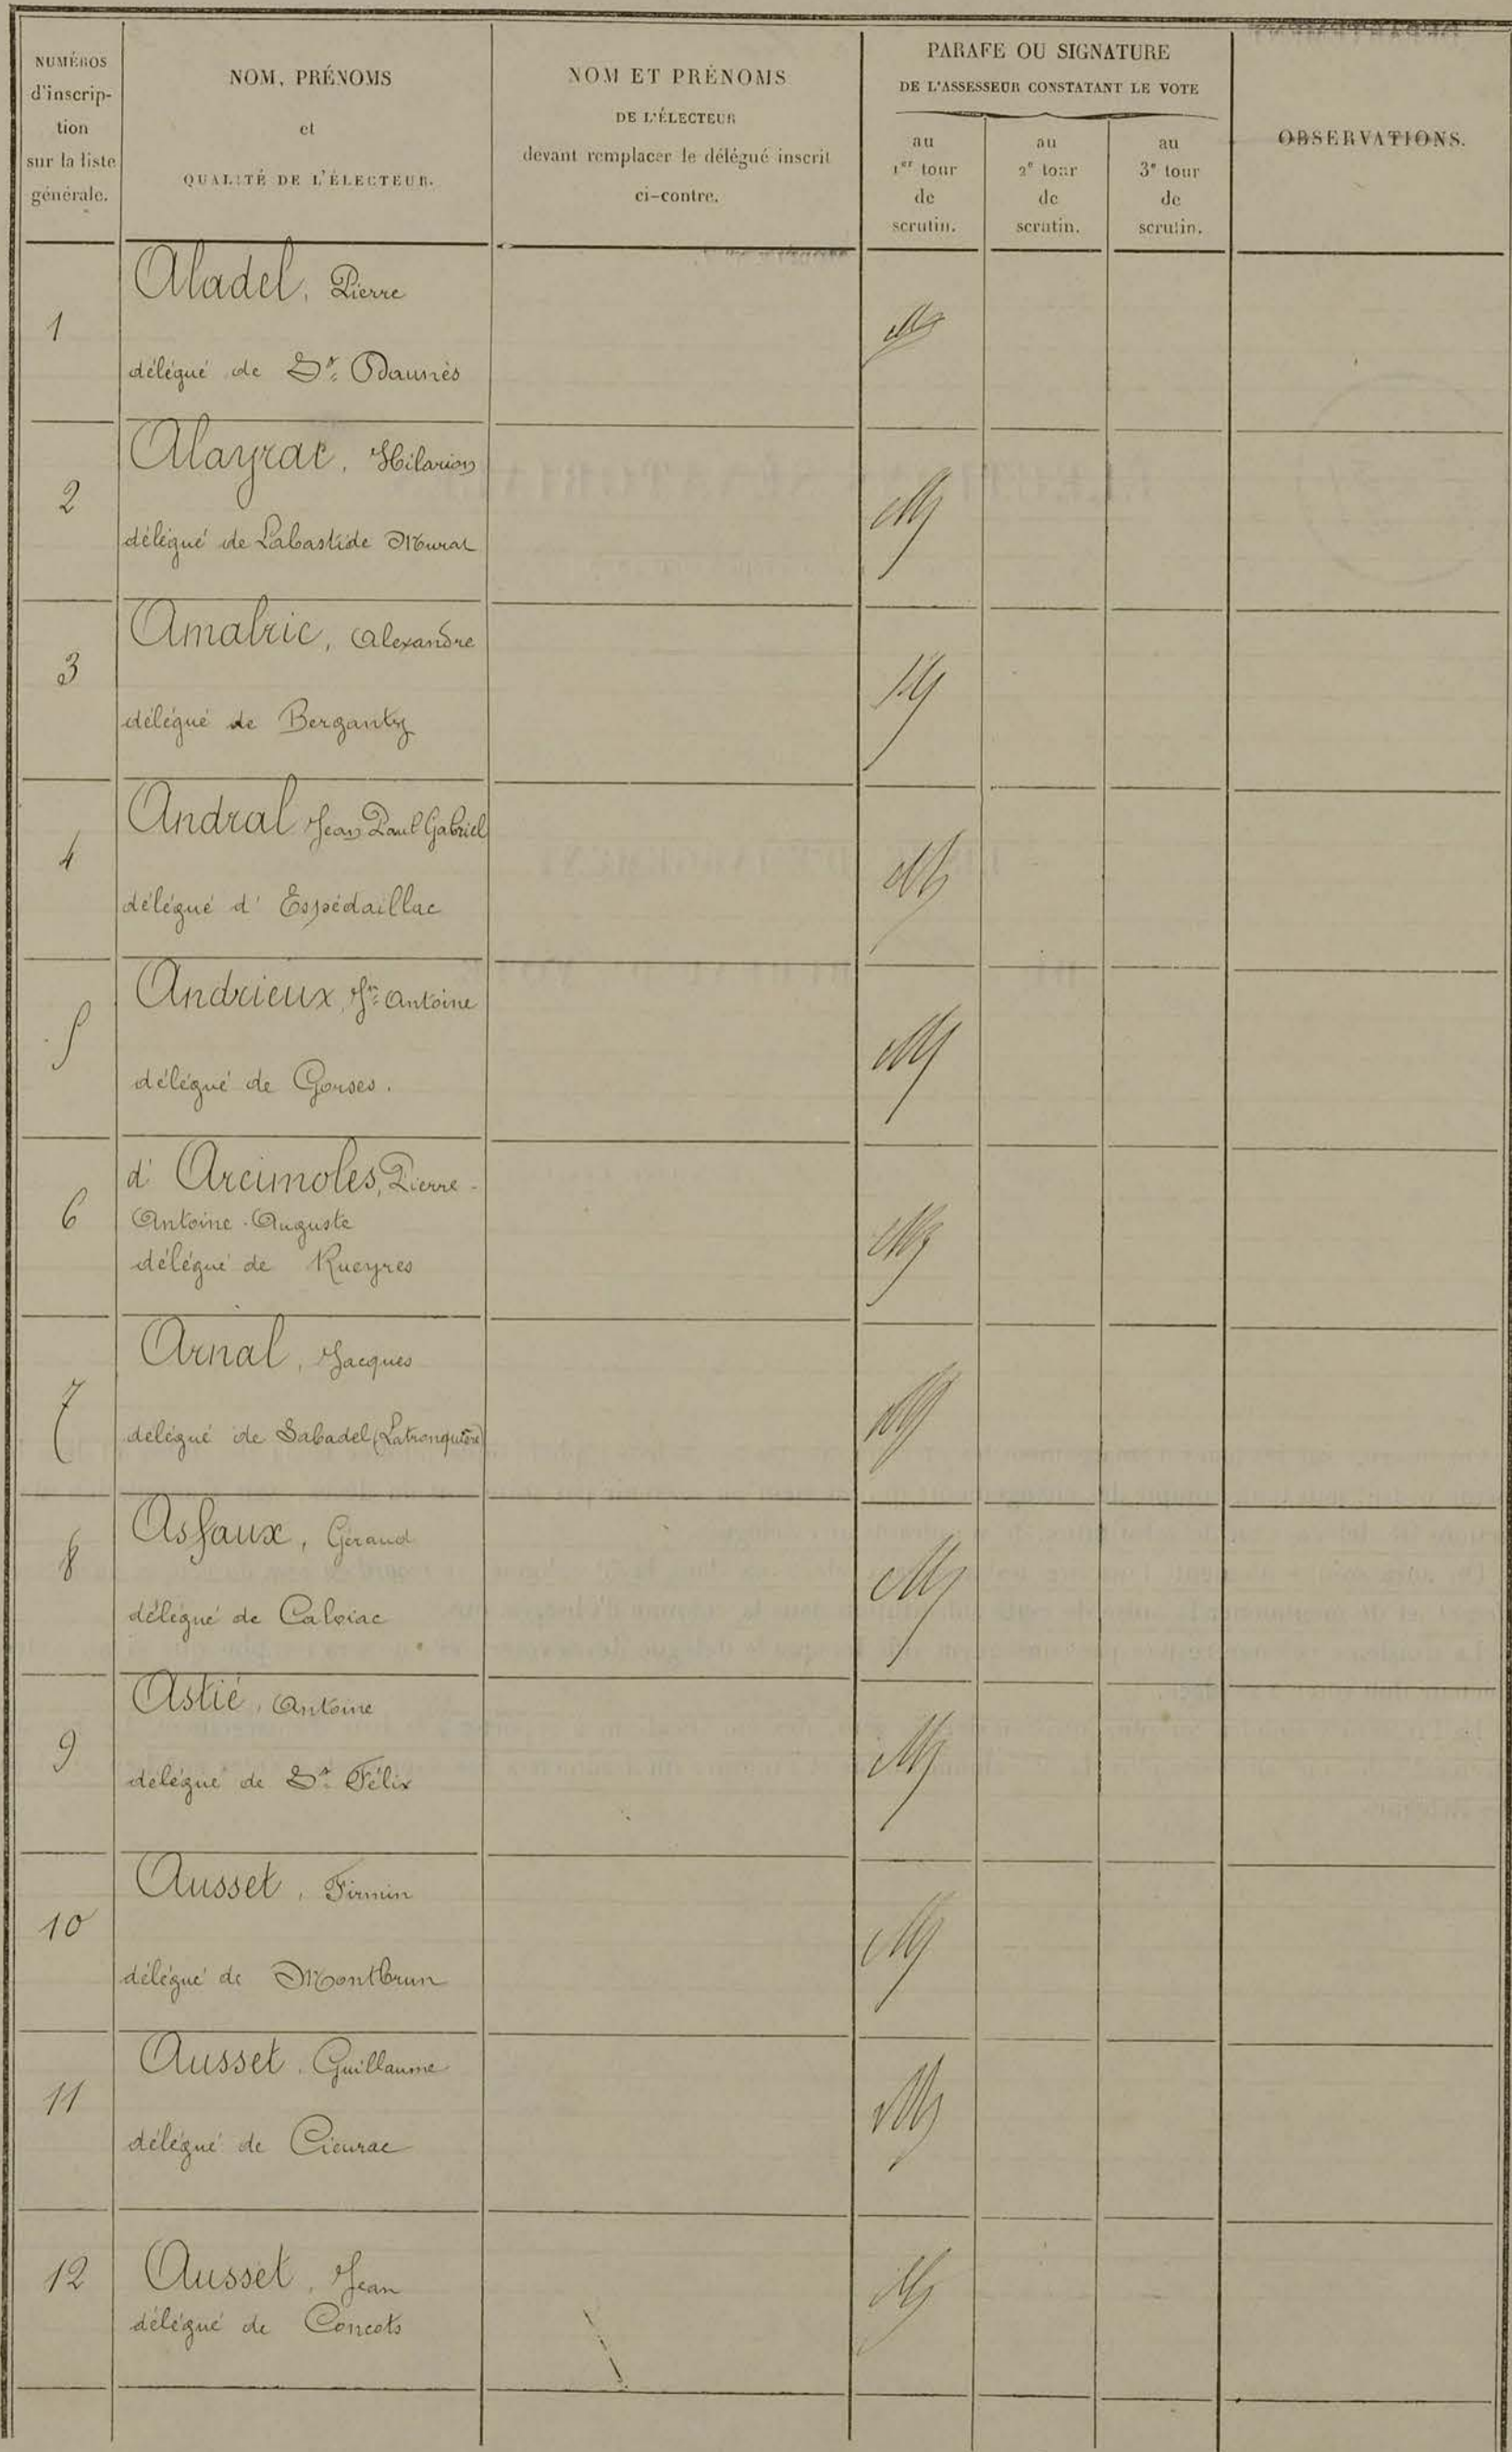 NUMÉROS
d'inscrip-
tion
sur la liste
générale.
NOM, PRÉNOMS
et
QUALITÉ DE L'ÉLECTEUR.
NOM ET PRÉNOMS
DE L'ÉLECTEUR
devant remplacer le délégué inscrit
ci-contre.
PARAFE OU SIGNATURE
DE L'ASSESSEUR CONSTATANT LE VOTE
au
1er tour
de
scrutin.
au
2e tour
de
scrutin.
au
3e tour
de
scrutin.
OBSERVATIONS.
1
Aladel, Pierre
délégué de St. Daunès
2
Alayrac, Hilarion
délégué de Labastide Murat
3
Amalric, Alexandre
délégué de Berganty
4
Andral Jean Paul Gabriel
délégué d'Espédaillac
5
Andrieux, Jn. Antoine
délégué de Gorses.
6
d'Arcimoles, Pierre-
Antoine-Auguste
délégué de Rueyres
7
Arnal, Jacques
délégué de Sabadel (Latronquière)
8
Asfaux, Géraud
délégué de Calviac
9
Astié, Antoine
délégué de St. Félix
10
Ausset, Firmin
délégué de Montbrun
11
Ausset, Guillaume
délégué de Cieurac
12
Ausset, Jean
délégué de Concots